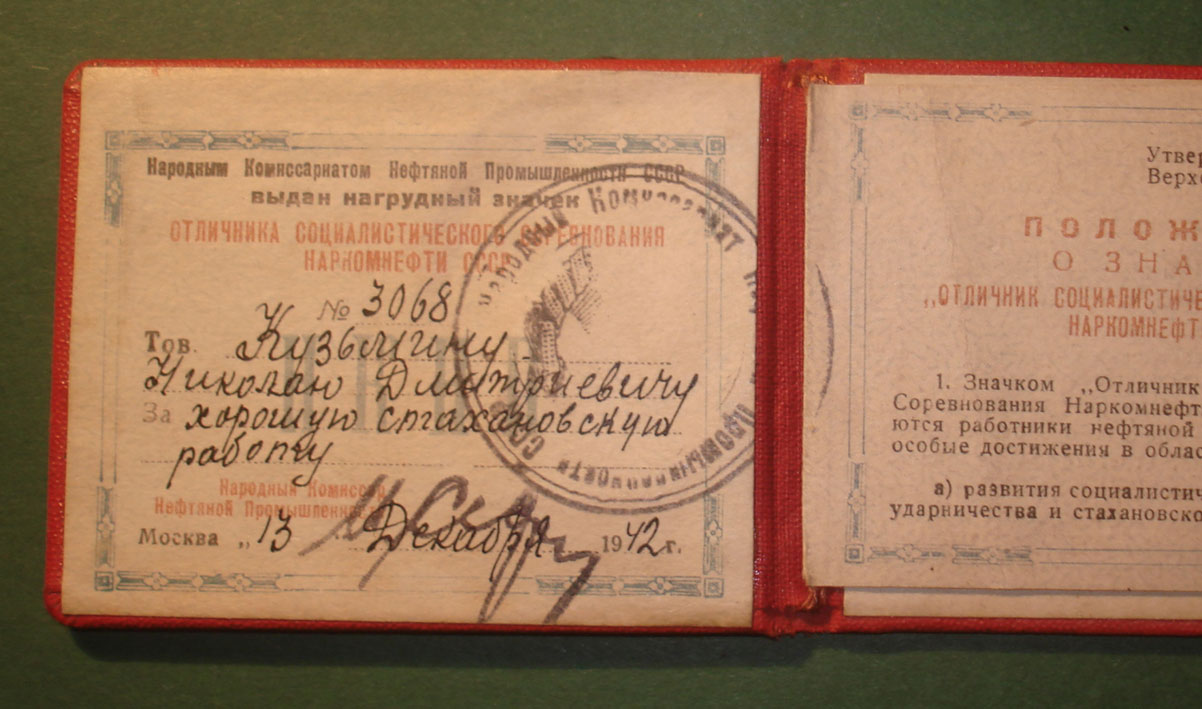 Народным Комиссариатом Нефтяной Промышленности СССР
выдан нагрудный значек
ОТЛИЧНИКА СОЦИАЛИСТИЧЕСКОГО СОРЕВНОВАНИЯ
НАРКОМНЕФТИ СССР
№ 3068
Тов. Кузьмину
Николаю Дмитриевичу
За хорошую стахановскую
работу
Народный Комиссар
Нефтяной Промышленности
Москва „13 Декабря 1942 г.
Народный Комиссариат Промышленности
Утвер
Верхо
ПОЛОЖ
О ЗНА
„ОТЛИЧНИК СОЦИАЛИСТИЧЕ
НАРКОМНЕФТ
1. Значком „Отличник
Соревнования Наркомнефт
ются работники нефтяной
особые достижения в облас
а) развития социалистич
ударничества и стахановско